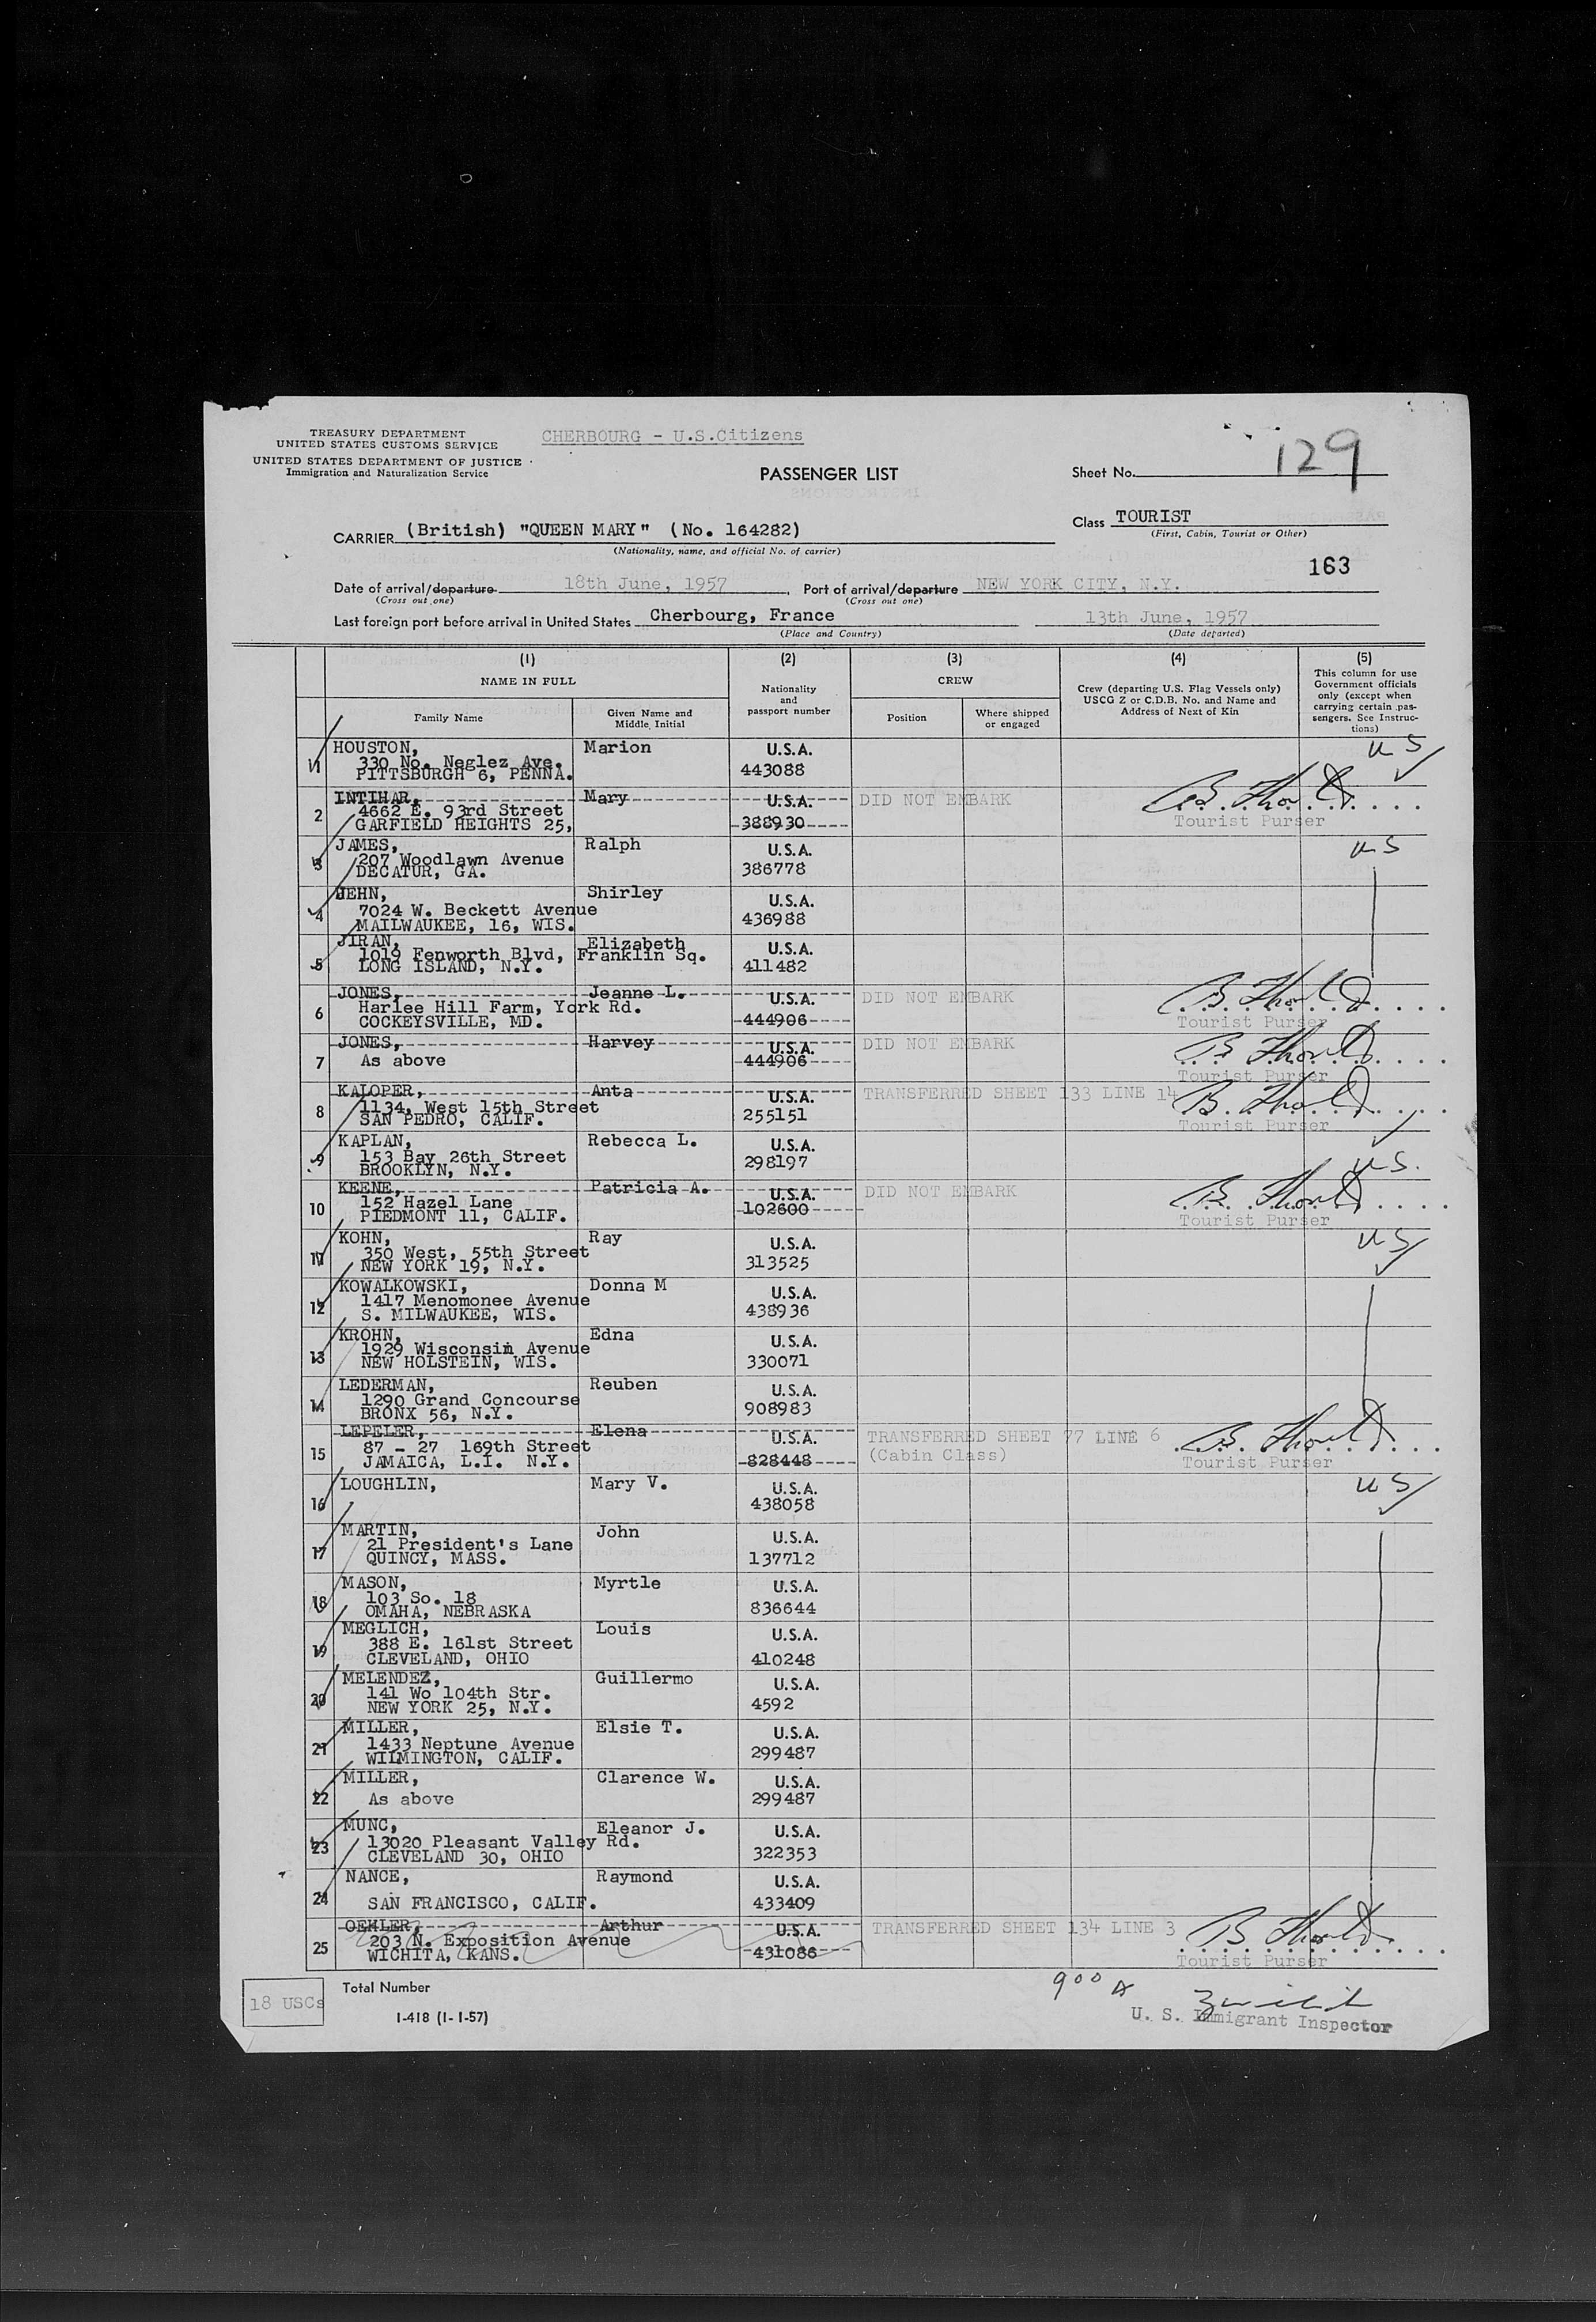 TREASURY DEPARTMENT
UNITED STATES CUSTOMS SERVICE
UNITED STATES DEPARTMENT OF JUSTICE
Immigration and Naturalization Service
CHERBOURG - U.S.Citizens
PASSENGER LIST
Sheet No. 129
CARRIER (British) "QUEEN MARY" (No. 164282)
(Nationality, name, and official No. of carrier)
Class TOURIST
(First, Cabin, Tourist or Other)
163
Date of arrival/departure 18th June, 1957, Port of arrival/departure NEW YORK CITY, N.Y.
(Cross out one) (Cross out one)
Last foreign port before arrival in United States Cherbourg, France 13th June, 1957
(Place and Country) (Date departed)
(1) (2) (3) (4) (5)
NAME IN FULL
Family Name
Given Name and Middle Initial
Nationality and passport number
CREW
Position
Where shipped or engaged
Crew (departing U.S. Flag Vessels only) USCG Z or C.D.B. No. and Name and Address of Next of Kin
This column for use Government officials only (except when carrying certain pas-sengers. See Instruc-tions)
1 HOUSTON, Marion U.S.A. US
330 No. Neglez Ave. 443088
PITTSBURGH 6, PENNA.
2 INTIHAR, Mary U.S.A. DID NOT EMBARK
4662 E. 93rd Street 388930 Tourist Purser
GARFIELD HEIGHTS 25,
3 JAMES, Ralph U.S.A. US
207 Woodlawn Avenue 386778
DECATUR, GA.
4 JEHN, Shirley U.S.A.
7024 W. Beckett Avenue 436988
MAILWAUKEE, 16, WIS.
5 JIRAN, Elizabeth U.S.A.
1019 Fenworth Blvd, Franklin Sq. 411482
LONG ISLAND, N.Y.
6 JONES, Jeanne L. U.S.A. DID NOT EMBARK
Harlee Hill Farm, York Rd. 444906 Tourist Purser
COCKEYSVILLE, MD.
7 JONES, Harvey U.S.A. DID NOT EMBARK
As above 444906 Tourist Purser
8 KALOPER, Anta U.S.A. TRANSFERRED SHEET 133 LINE 14
1134, West 15th Street 255151 Tourist Purser
SAN PEDRO, CALIF.
9 KAPLAN, Rebecca L. U.S.A. US.
153 Bay 26th Street 298197
BROOKLYN, N.Y.
10 KEENE, Patricia A. U.S.A. DID NOT EMBARK
152 Hazel Lane 102600 Tourist Purser
PIEDMONT 11, CALIF.
11 KOHN, Ray U.S.A. US
350 West, 55th Street 313525
NEW YORK 19, N.Y.
12 KOWALKOWSKI, Donna M U.S.A.
1417 Menomonee Avenue 438936
S. MILWAUKEE, WIS.
13 KROHN, Edna U.S.A.
1929 Wisconsin Avenue 330071
NEW HOLSTEIN, WIS.
14 LEDERMAN, Reuben U.S.A.
1290 Grand Concourse 908983
BRONX 56, N.Y.
15 LEPELER, Elena U.S.A. TRANSFERRED SHEET 77 LINE 6
87 - 27 169th Street 828448 (Cabin Class) Tourist Purser
JAMAICA, L.I. N.Y.
16 LOUGHLIN, Mary V. U.S.A. US
438058
17 MARTIN, John U.S.A.
21 President's Lane 137712
QUINCY, MASS.
18 MASON, Myrtle U.S.A.
103 So. 18 836644
OMAHA, NEBRASKA
19 MEGLICH, Louis U.S.A.
388 E. 161st Street 410248
CLEVELAND, OHIO
20 MELENDEZ, Guillermo U.S.A.
141 Wo 104th Str. 4592
NEW YORK 25, N.Y.
21 MILLER, Elsie T. U.S.A.
1433 Neptune Avenue 299487
WILMINGTON, CALIF.
22 MILLER, Clarence W. U.S.A.
As above 299487
23 MUNC, Eleanor J. U.S.A.
13020 Pleasant Valley Rd. 322353
CLEVELAND 30, OHIO
24 NANCE, Raymond U.S.A.
SAN FRANCISCO, CALIF. 433409
25 OEHLER, Arthur U.S.A. TRANSFERRED SHEET 134 LINE 3
203 N. Exposition Avenue 431086 Tourist Purser
WICHITA, KANS.
18 USCs
Total Number
I-418 (1-1-57)
900
U. S. Immigrant Inspector